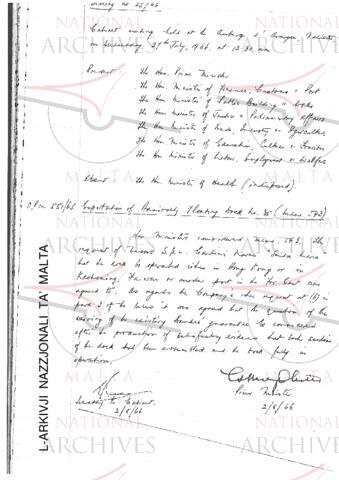 Meeting no 25/66
Cabinet meeting held at the Auberge d'Aragon, Valletta
on Wednesday, 27th July, 1966 at 12.30 pm
Present: The Hon. Prime Minister
The Hon. Minister of Finance, Customs & Port
The Hon Minister of Public Building & Works
The Hon Minister of Justice & Parliamentary Affairs
The Hon Minister of Trade, Industry & Agriculture
The Hon Minister of Education, Culture & Tourism
The Hon Minister of Labour, Employment & Welfare
Absent: The Hon Minister of Health (indisposed).
O.P.M 551/65 Exportation of Admiralty Floating Dock No. 35 (Memo 593)
The Ministers considered Memo 593. The
request of Messrs S.p.A. Cantieri Navali Santa Maria
that the dock be operated either in Hong Kong or in
or another port in the Far East was
agreed to. As regards the Company's other request at (b) in
para 3 of the Memo it was agreed that the question of the
waiving of the existing bank guarantee be considered
after the production of satisfactory evidence that both sections
of the dock had been assembled and the dock fully in
operation.
Secretary to Cabinet.
2/8/66
Prime Minister
2/8/66
L-ARKIVJI NAZZJONALI TA' MALTA
NATIONAL
ARCHIVES
MALTA